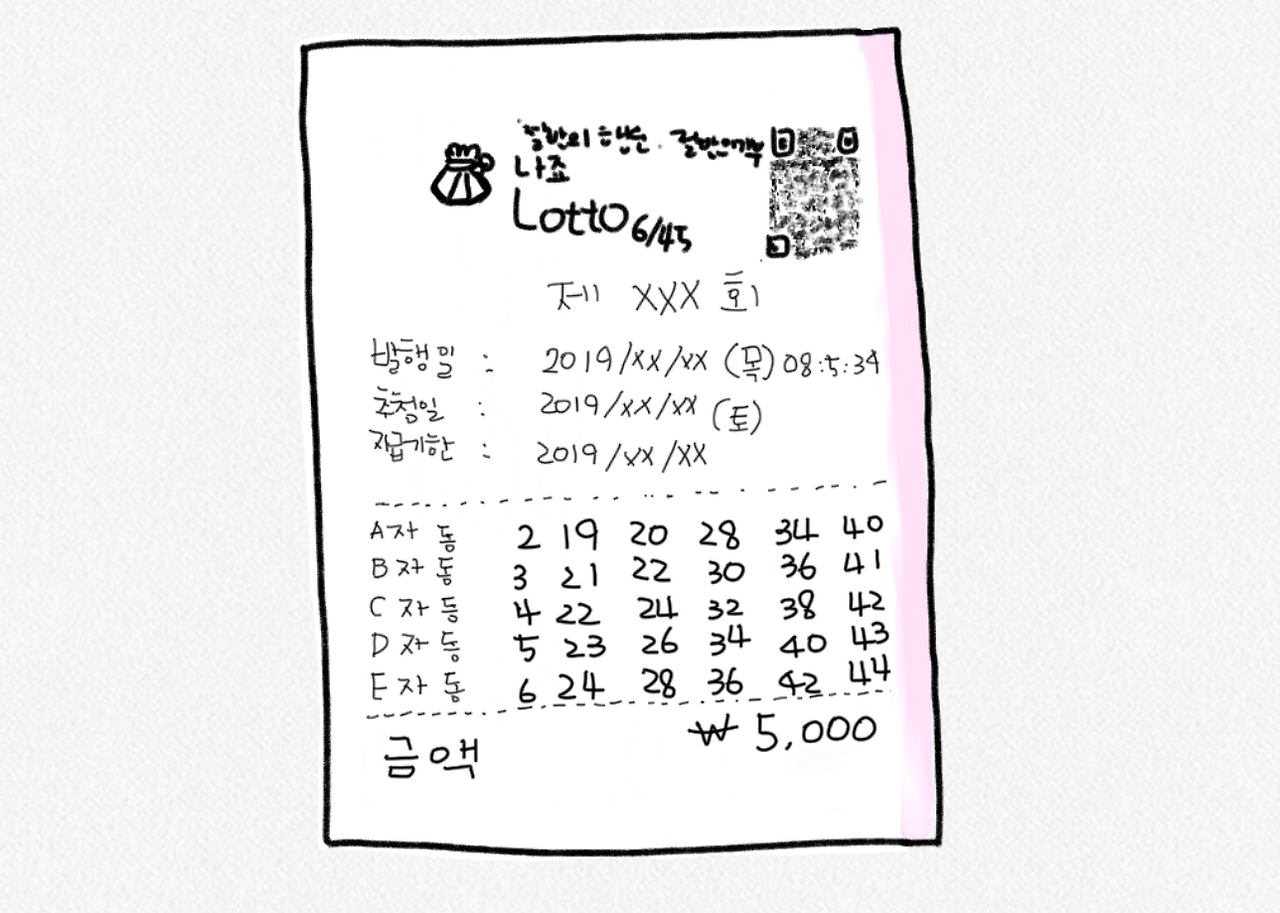 절반의 행운. 절반의 기부
나죠
Lotto 6/45
제 XXX 회
발행일 : 2019/xx/xx (목) 08:5:34
추첨일 : 2019/xx/xx (토)
지급기한 : 2019/xx/xx
A 자동 2 19 20 28 34 40
B 자동 3 21 22 30 36 41
C 자동 4 22 24 32 38 42
D 자동 5 23 26 34 40 43
E 자동 6 24 28 36 42 44
금액 ₩ 5,000